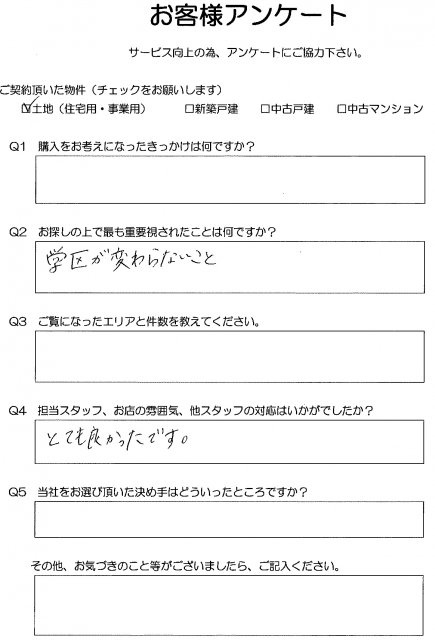 お客様アンケート
サービス向上の為、アンケートにご協力下さい。
ご契約頂いた物件（チェックをお願いします）
☑土地（住宅用・事業用） □新築戸建 □中古戸建 □中古マンション
Q1 購入をお考えになったきっかけは何ですか？
Q2 お探しの上で最も重要視されたことは何ですか？
学区が変わらないこと
Q3 ご覧になったエリアと件数を教えてください。
Q4 担当スタッフ、お店の雰囲気、他スタッフの対応はいかがでしたか？
とても良かったです。
Q5 当社をお選び頂いた決め手はどういったところですか？
その他、お気づきのこと等がございましたら、ご記入ください。